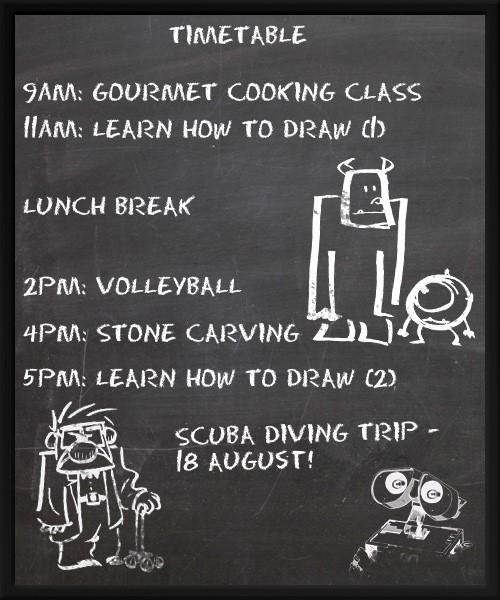 TIMETABLE
9AM: GOURMET COOKING CLASS
11AM: LEARN HOW TO DRAW (1)
LUNCH BREAK
2PM: VOLLEYBALL
4PM: STONE CARVING
5PM: LEARN HOW TO DRAW (2)
SCUBA DIVING TRIP -
18 AUGUST!